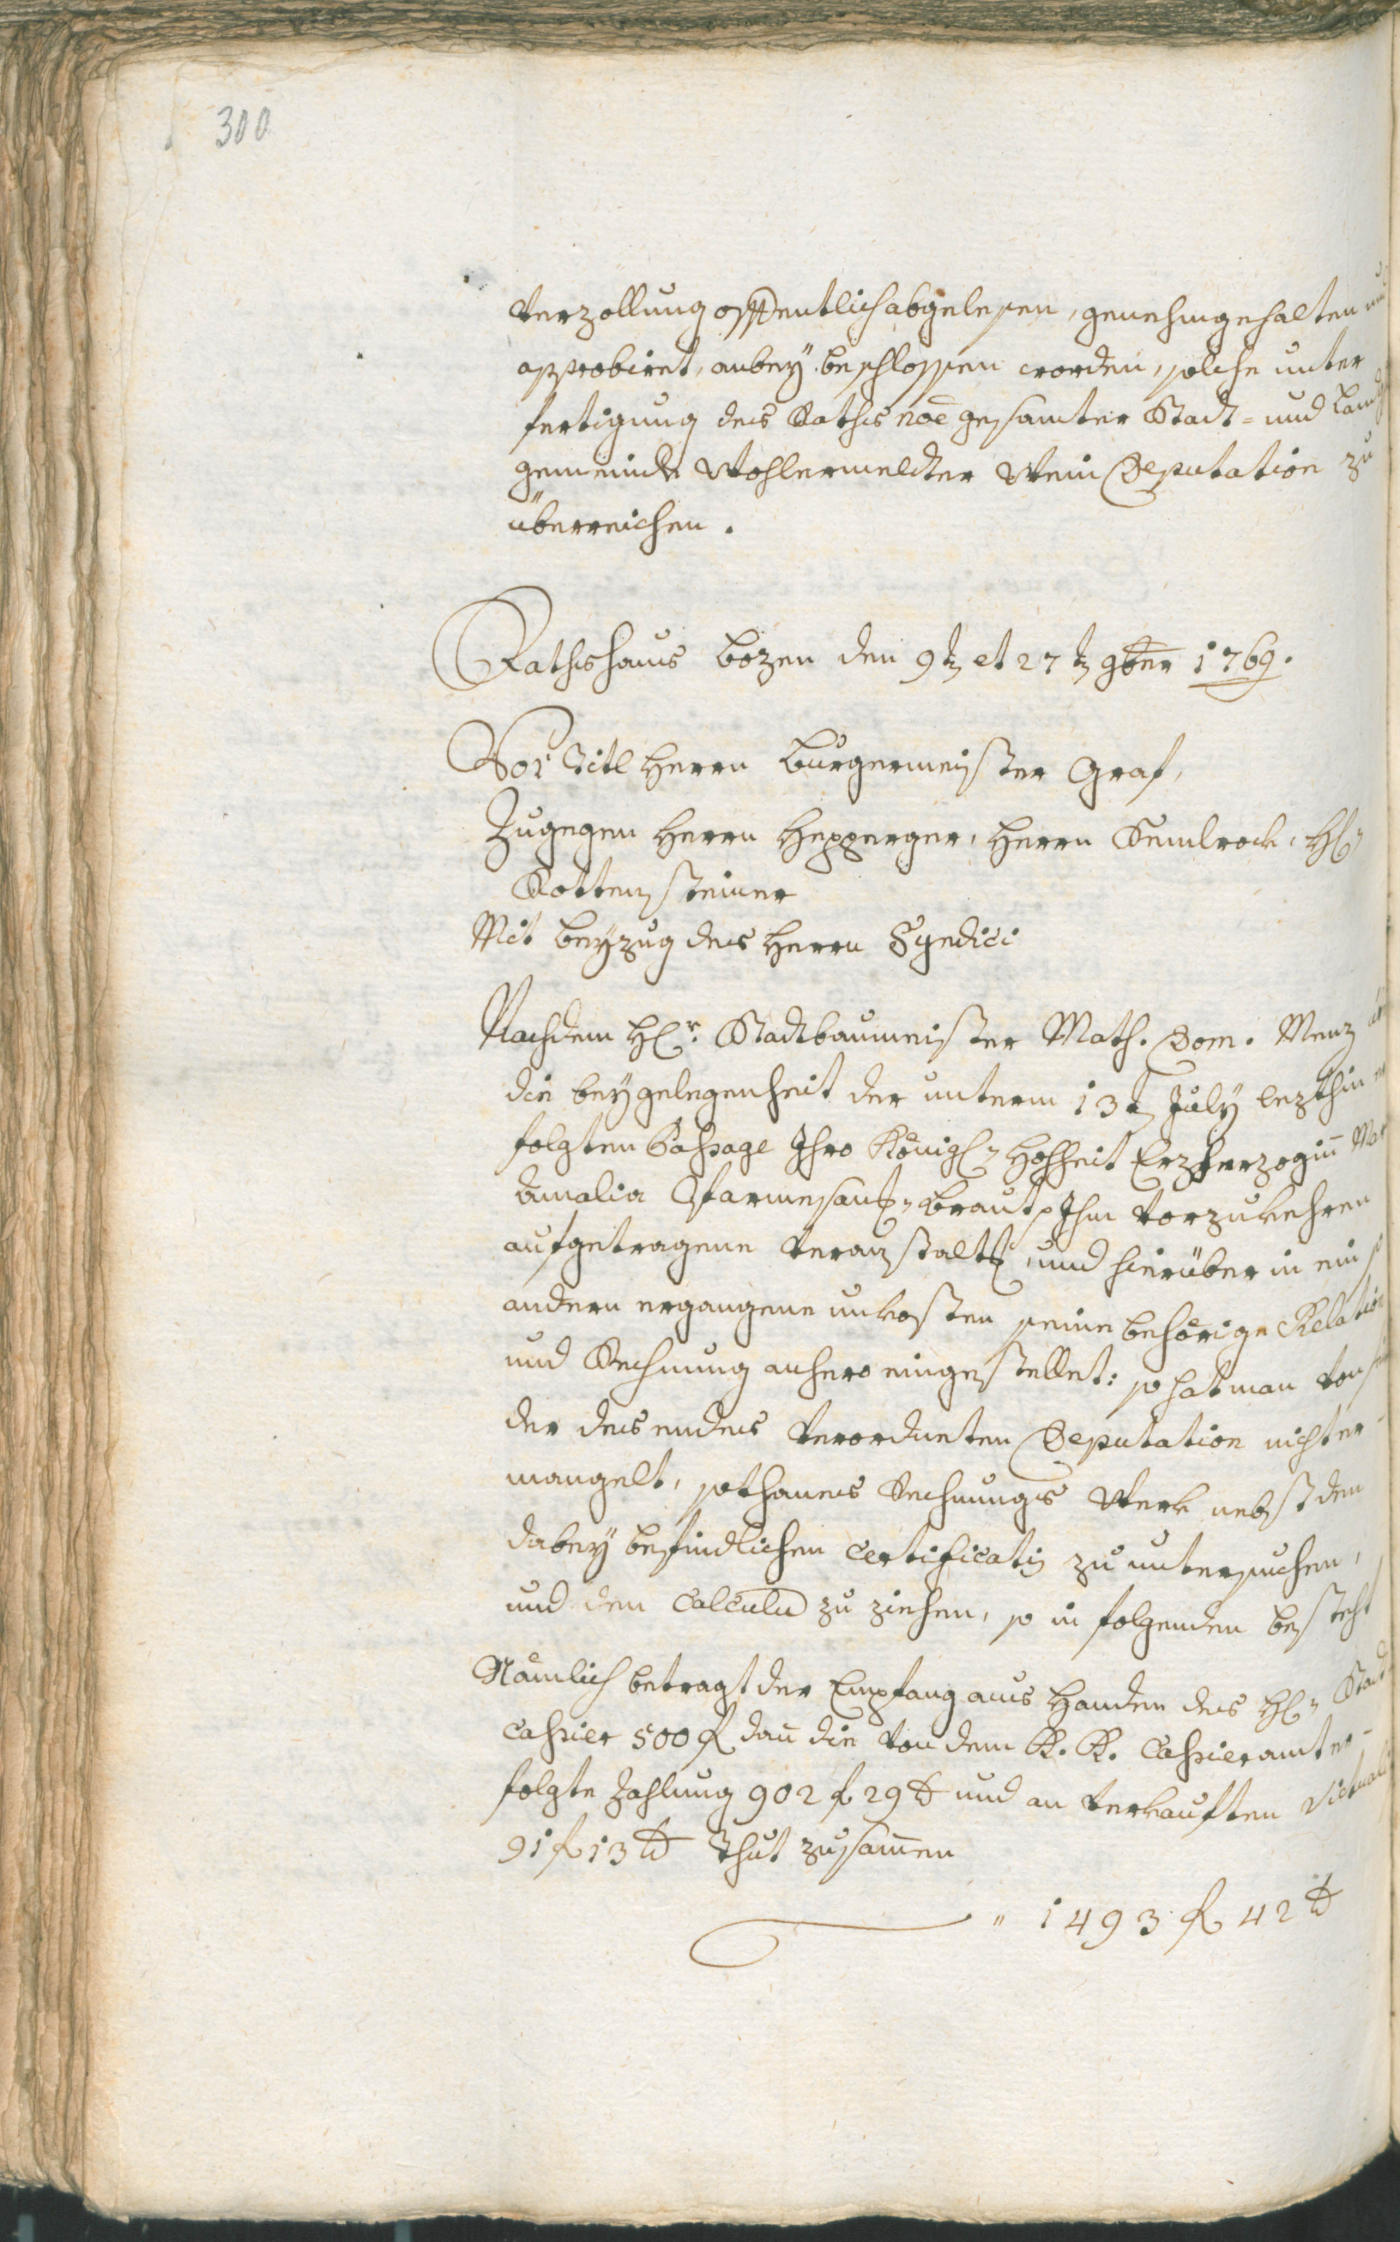 300
verzollung offentlich abgelesen, genehmgehalten und
approbiret, anbey beschlossen worden, solche unter
fertigung des Raths noē gesamter Stadt- und Land
gemeinde Wohlermelter Wein Deputation zu
überreichen.
Rathshaus Bozen den 9t et 27t 9ber 1769.
Vor Titl Herrn Burgermeister Graf,
Zugegen Herrn Hepperger, Herrn Kemlrock, H.
Rottensteiner
Mit beyzug des Herrn Syndici
Nachdem Hr. Stadtbaumeister Math. Dom. Menz
die bey gelegenheit der unterm 13t July lezthin er
folgten Paßage Ihro Königl. Hohheit Erzherzoginn Mar
Amalia Parmesans. braut Ihm vorzukehren
aufgetragene veranstalt, und hierüber in ein so
andern ergangene unkosten seine behörige Relation
und Rechnung anhero eingestellet: so hat man von
der des endes verordneten Deputation nicht er-
mangelt, sothanes Rechnungs Werk nebst den
dabey befindlichen Certificatis zu untersuchen,
und den Calculu zu ziehen, so in folgenden besteht
Nämlich betragt der Empfang aus Handen des H. Stadt
Caßier 500 f dan̄ die von dem K. K. Caßieramt er-
folgte Zahlung 902 f 29 x und an verkauften Victuali
91 f 13 x Thut zusam̄en
" 1493 f 42 x